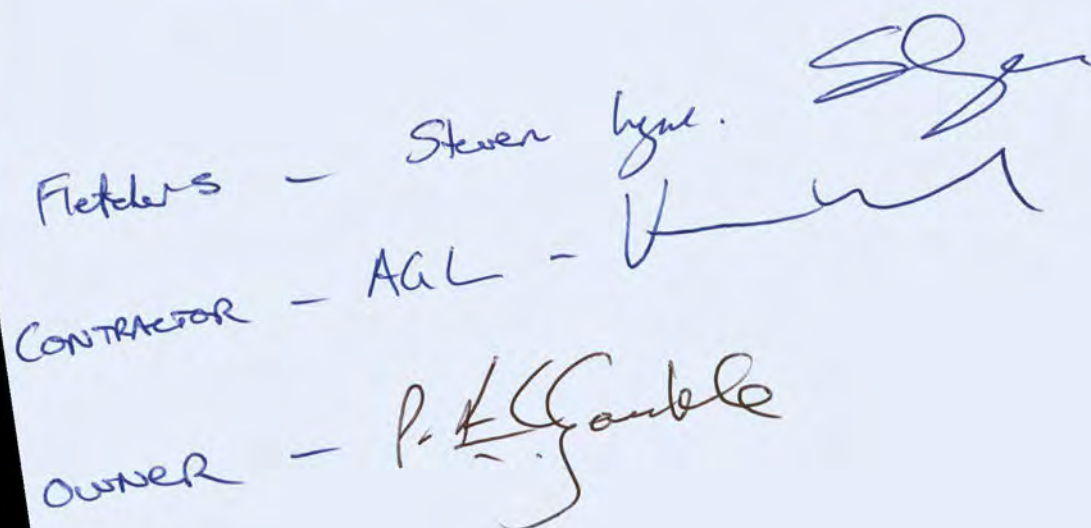 Fletchers - Steven Lyne.
CONTRACTOR - AGL -
OWNER - P. K. Gamble